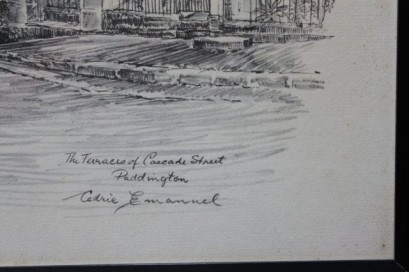 The Terraces of Cascade Street
Paddington
Cedric Emanuel